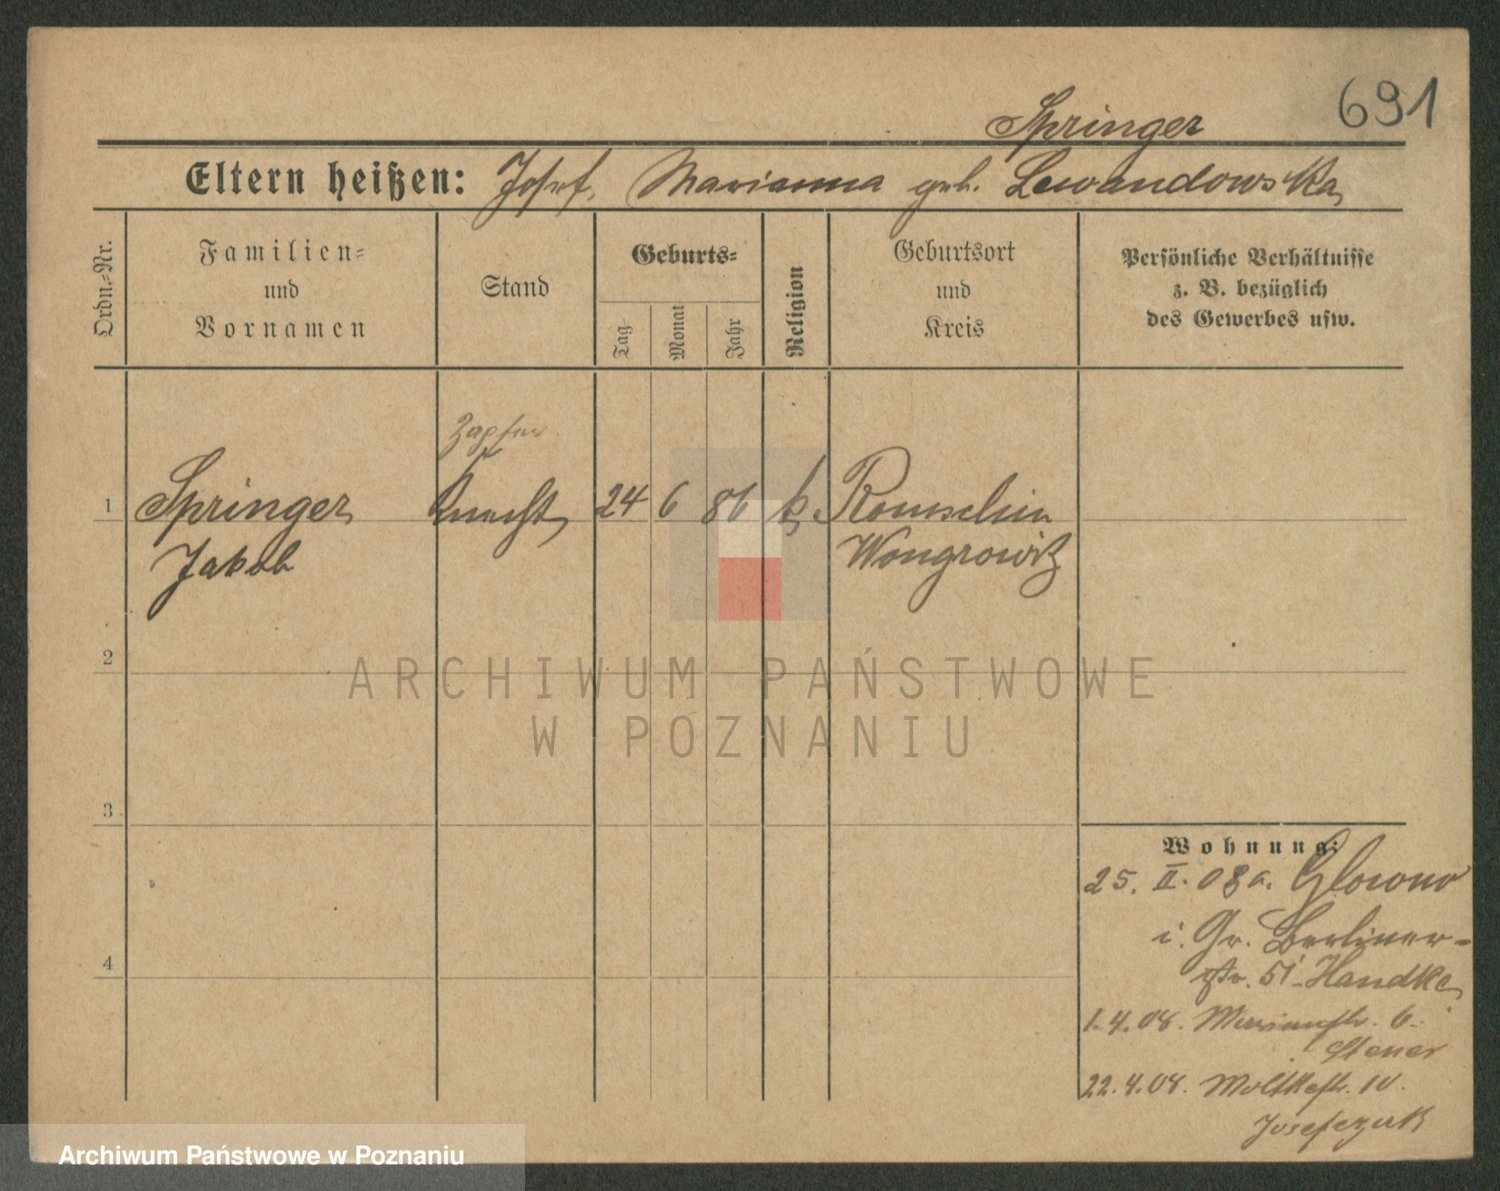 691
Springer
Eltern heißen: Josef, Marianna geb. Lewandowska
Ordn.-Nr.
Familien-
und
Vornamen
Stand
Geburts-
Tag
Monat
Jahr
Religion
Geburtsort
und
Kreis
Persönliche Verhältnisse
z. B. bezüglich
des Gewerbes usw.
Zapfer
1 Springer Knecht 24 6 86 k.
Jakob Wongrowitz
2
3
4
ARCHIWUM PAŃSTWOWE
W POZNANIU
Wohnung:
25. II. 08 a. Glowno
i. Gr. Berliner-
str. 51 Handke
1.4.08. 6.
22.4.08. Moltkestr. 10.
Josefczuk
Archiwum Państwowe w Poznaniu